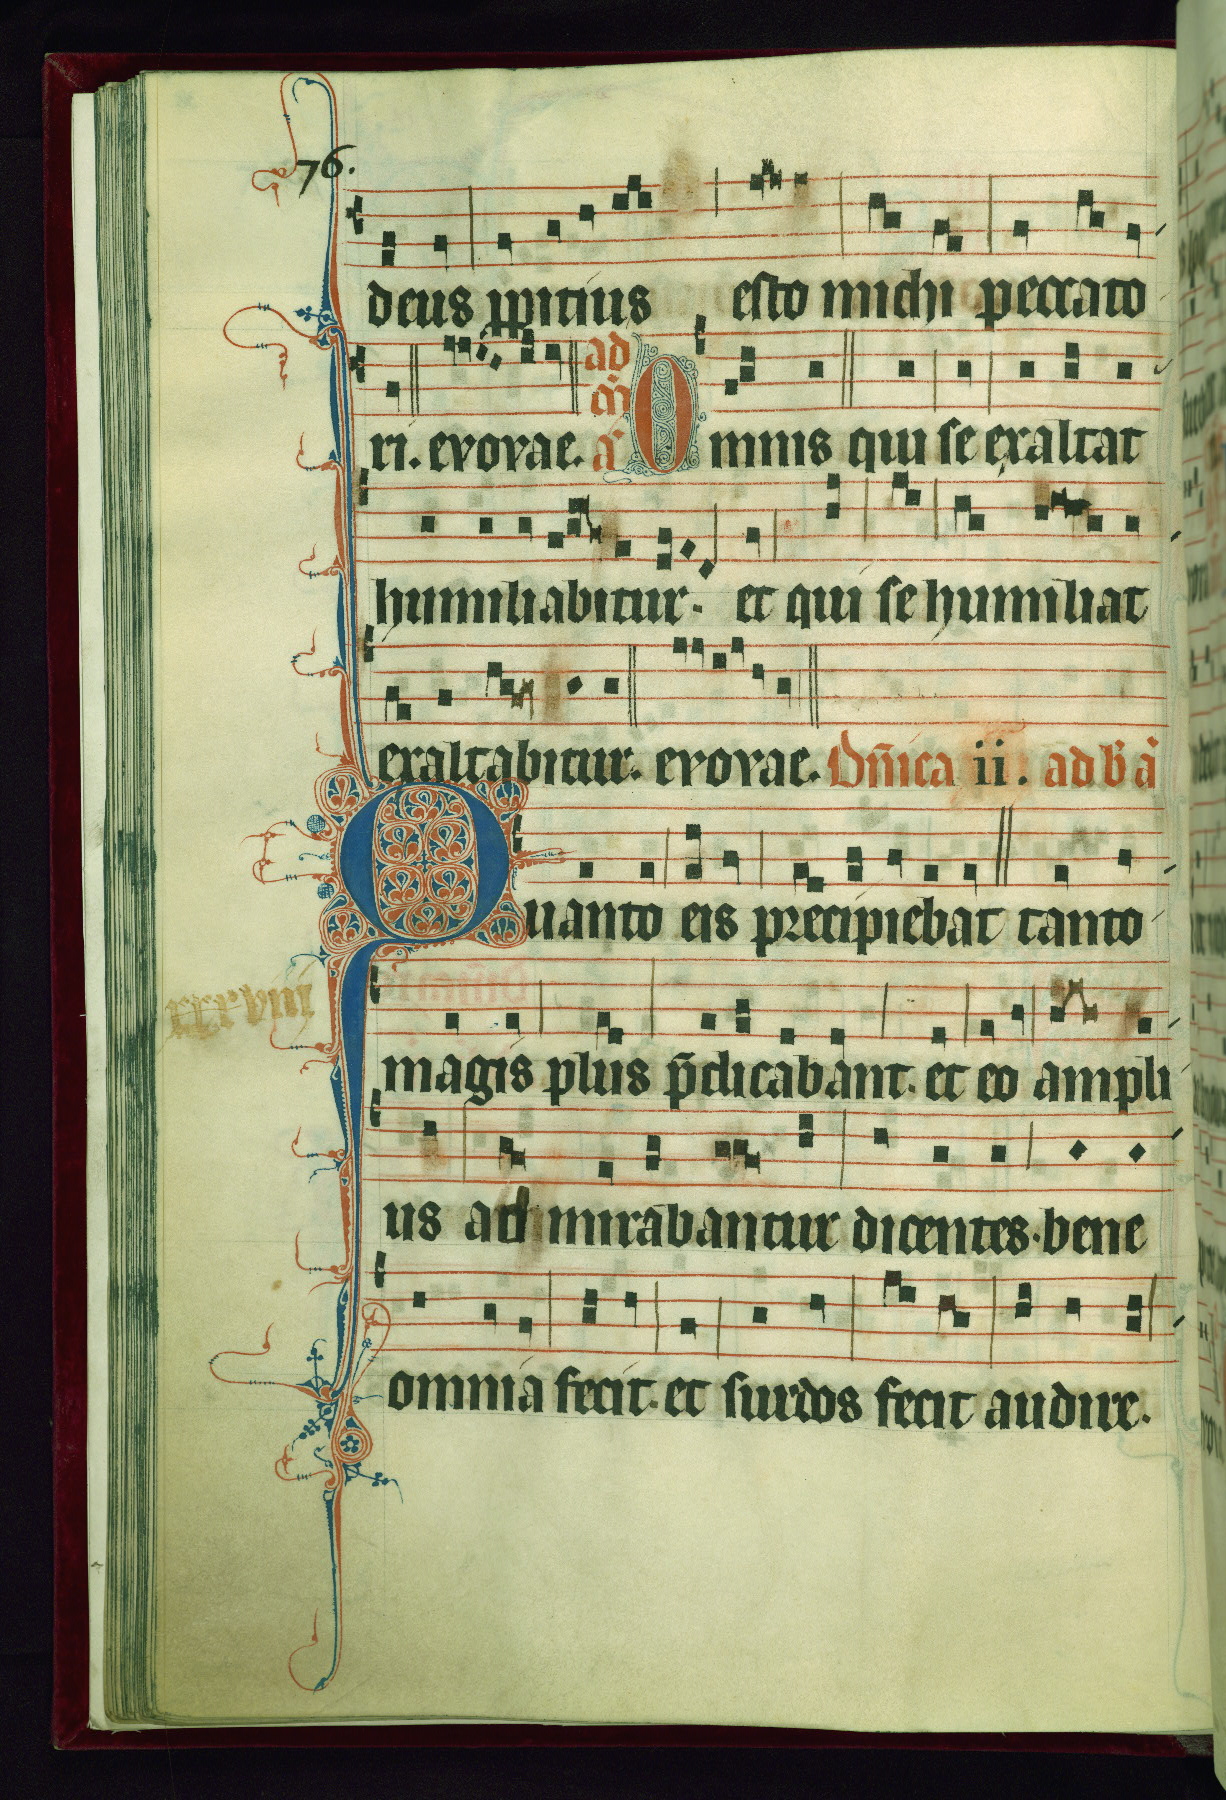 76.
deus ꝓpitius esto michi peccato
ri. evovae. ad m̃ a᷑ Omnis qui se exaltat
humiliabitur. et qui se humiliat
exaltabitur. evovae. Dñica ii. ad b᷑ a᷑
Quanto eis precipiebat tanto
xxxviii
magis plus p̃dicabant. et eo ampli
us ad mirabantur dicentes. bene
omnia fecit. et surdos fecit audire.